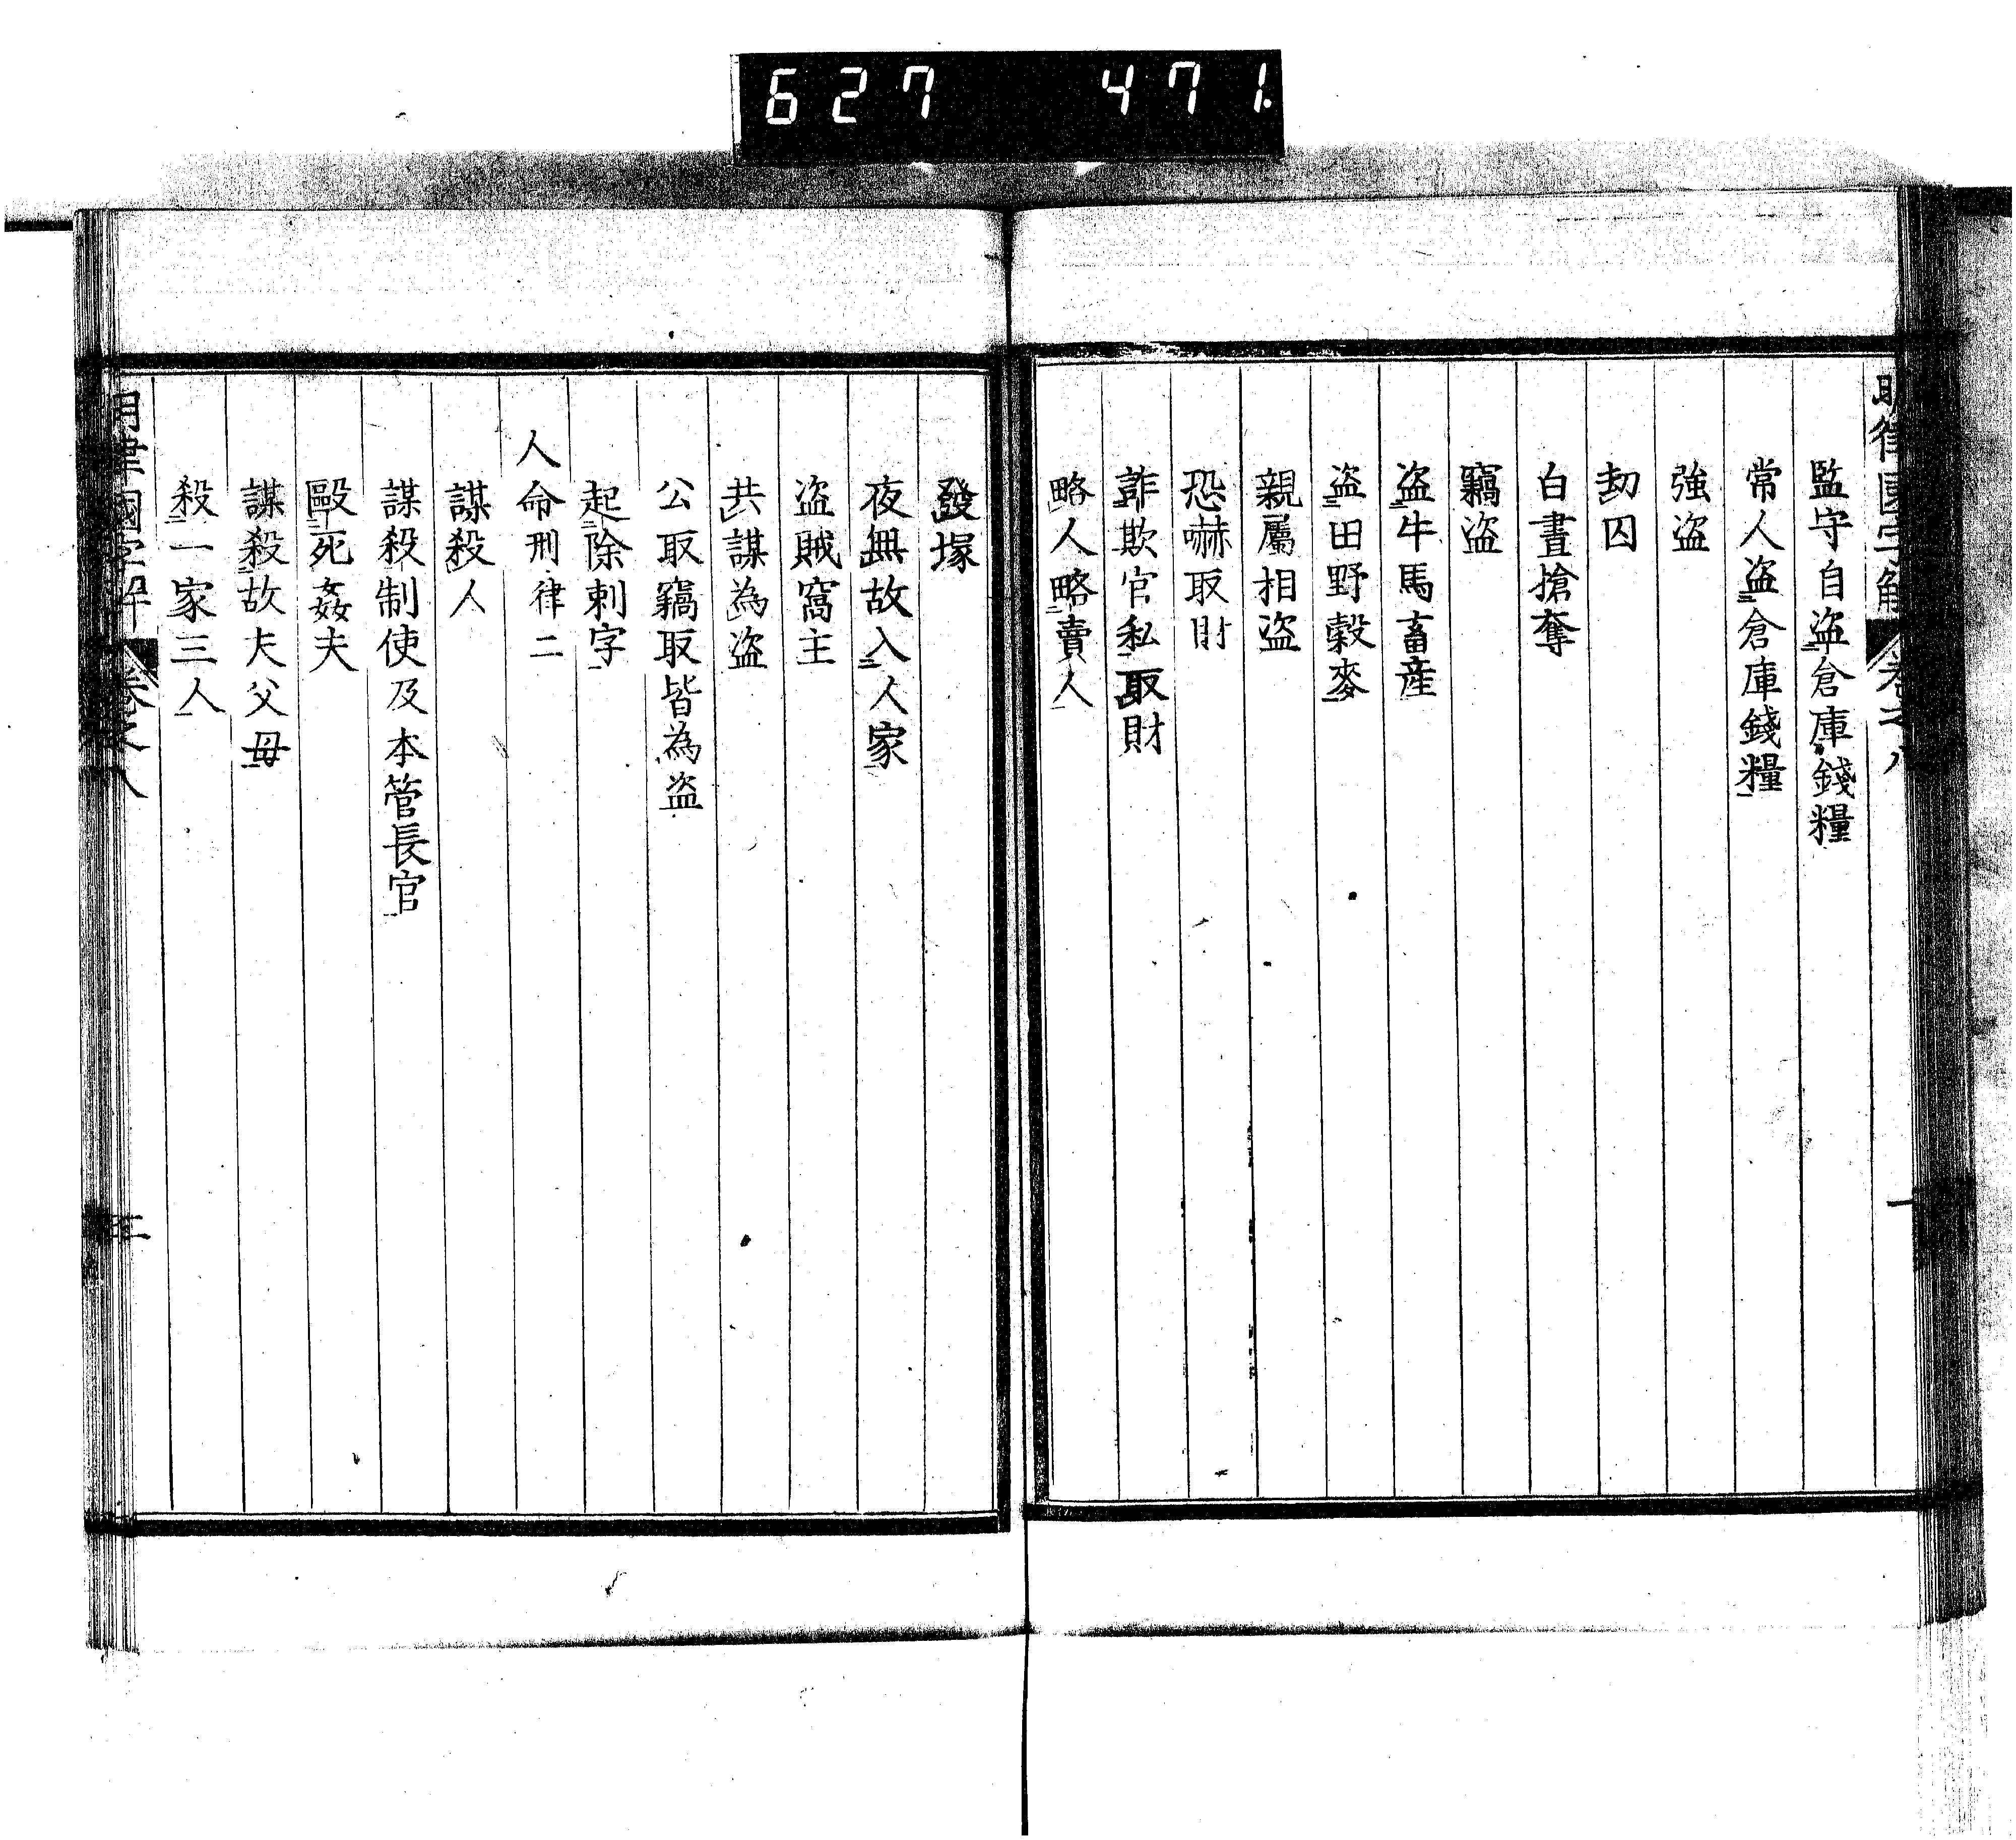 627 471
監守自盜倉庫錢糧
常人盜倉庫錢糧
強盜
劫囚
白晝搶奪
竊盜
盜牛馬畜産
盜田野穀麥
親屬相盜
恐嚇取財
詐欺官私取財
略人略賣人
發塚
夜無故入人家
盜賊窩主
共謀為盜
公取竊取皆為盜
起除刺字
人命刑律二
謀殺人
謀殺制使及本管長官
毆死姦夫
謀殺故夫父母
殺一家三人